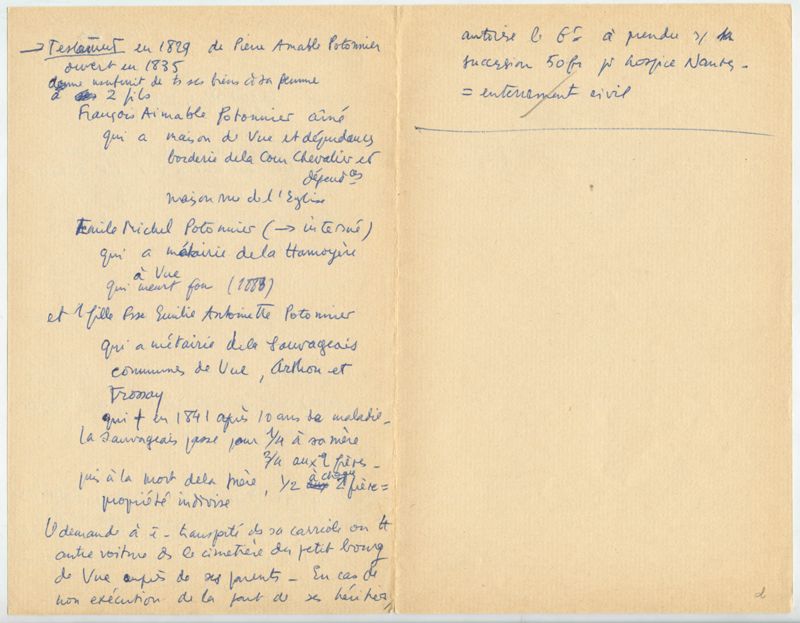 → Testament en 1829 de Pierre Amable Potonnier
ouvert en 1835
donne usufruit de ts ses biens à sa femme
à 2 fils
François Aimable Potonnier aîné
qui a maison de Vue et dépendances
borderie de la Cour Chevalier et
dépendces
maison rue de l'Eglise
Emile Michel Potonnier (→ interné)
qui a métairie de la Hamoyère
à Vue
qui meurt fou (1883)
et 1 fille Rose Emilie Antoinette Potonnier
qui a métairie de la Sauvageais
communes de Vue, Arthon et
Frossay
qui + en 1841 après 10 ans de maladie -
la Sauvageais passe pour 1/4 à sa mère
3/4 aux 2 frères -
puis à la mort de la mère, 1/2 à chaque frère =
propriété indivise
Il demande à ê - transporté ds sa carriole ou tt
autre voiture ds le cimetière du petit bourg
de Vue auprès de ses parents - En cas de
non exécution de la part de ses héritiers
autorise le Gt à prendre s/ sa
succession 50 fr pr hospice Nantes -
= enterrement civil